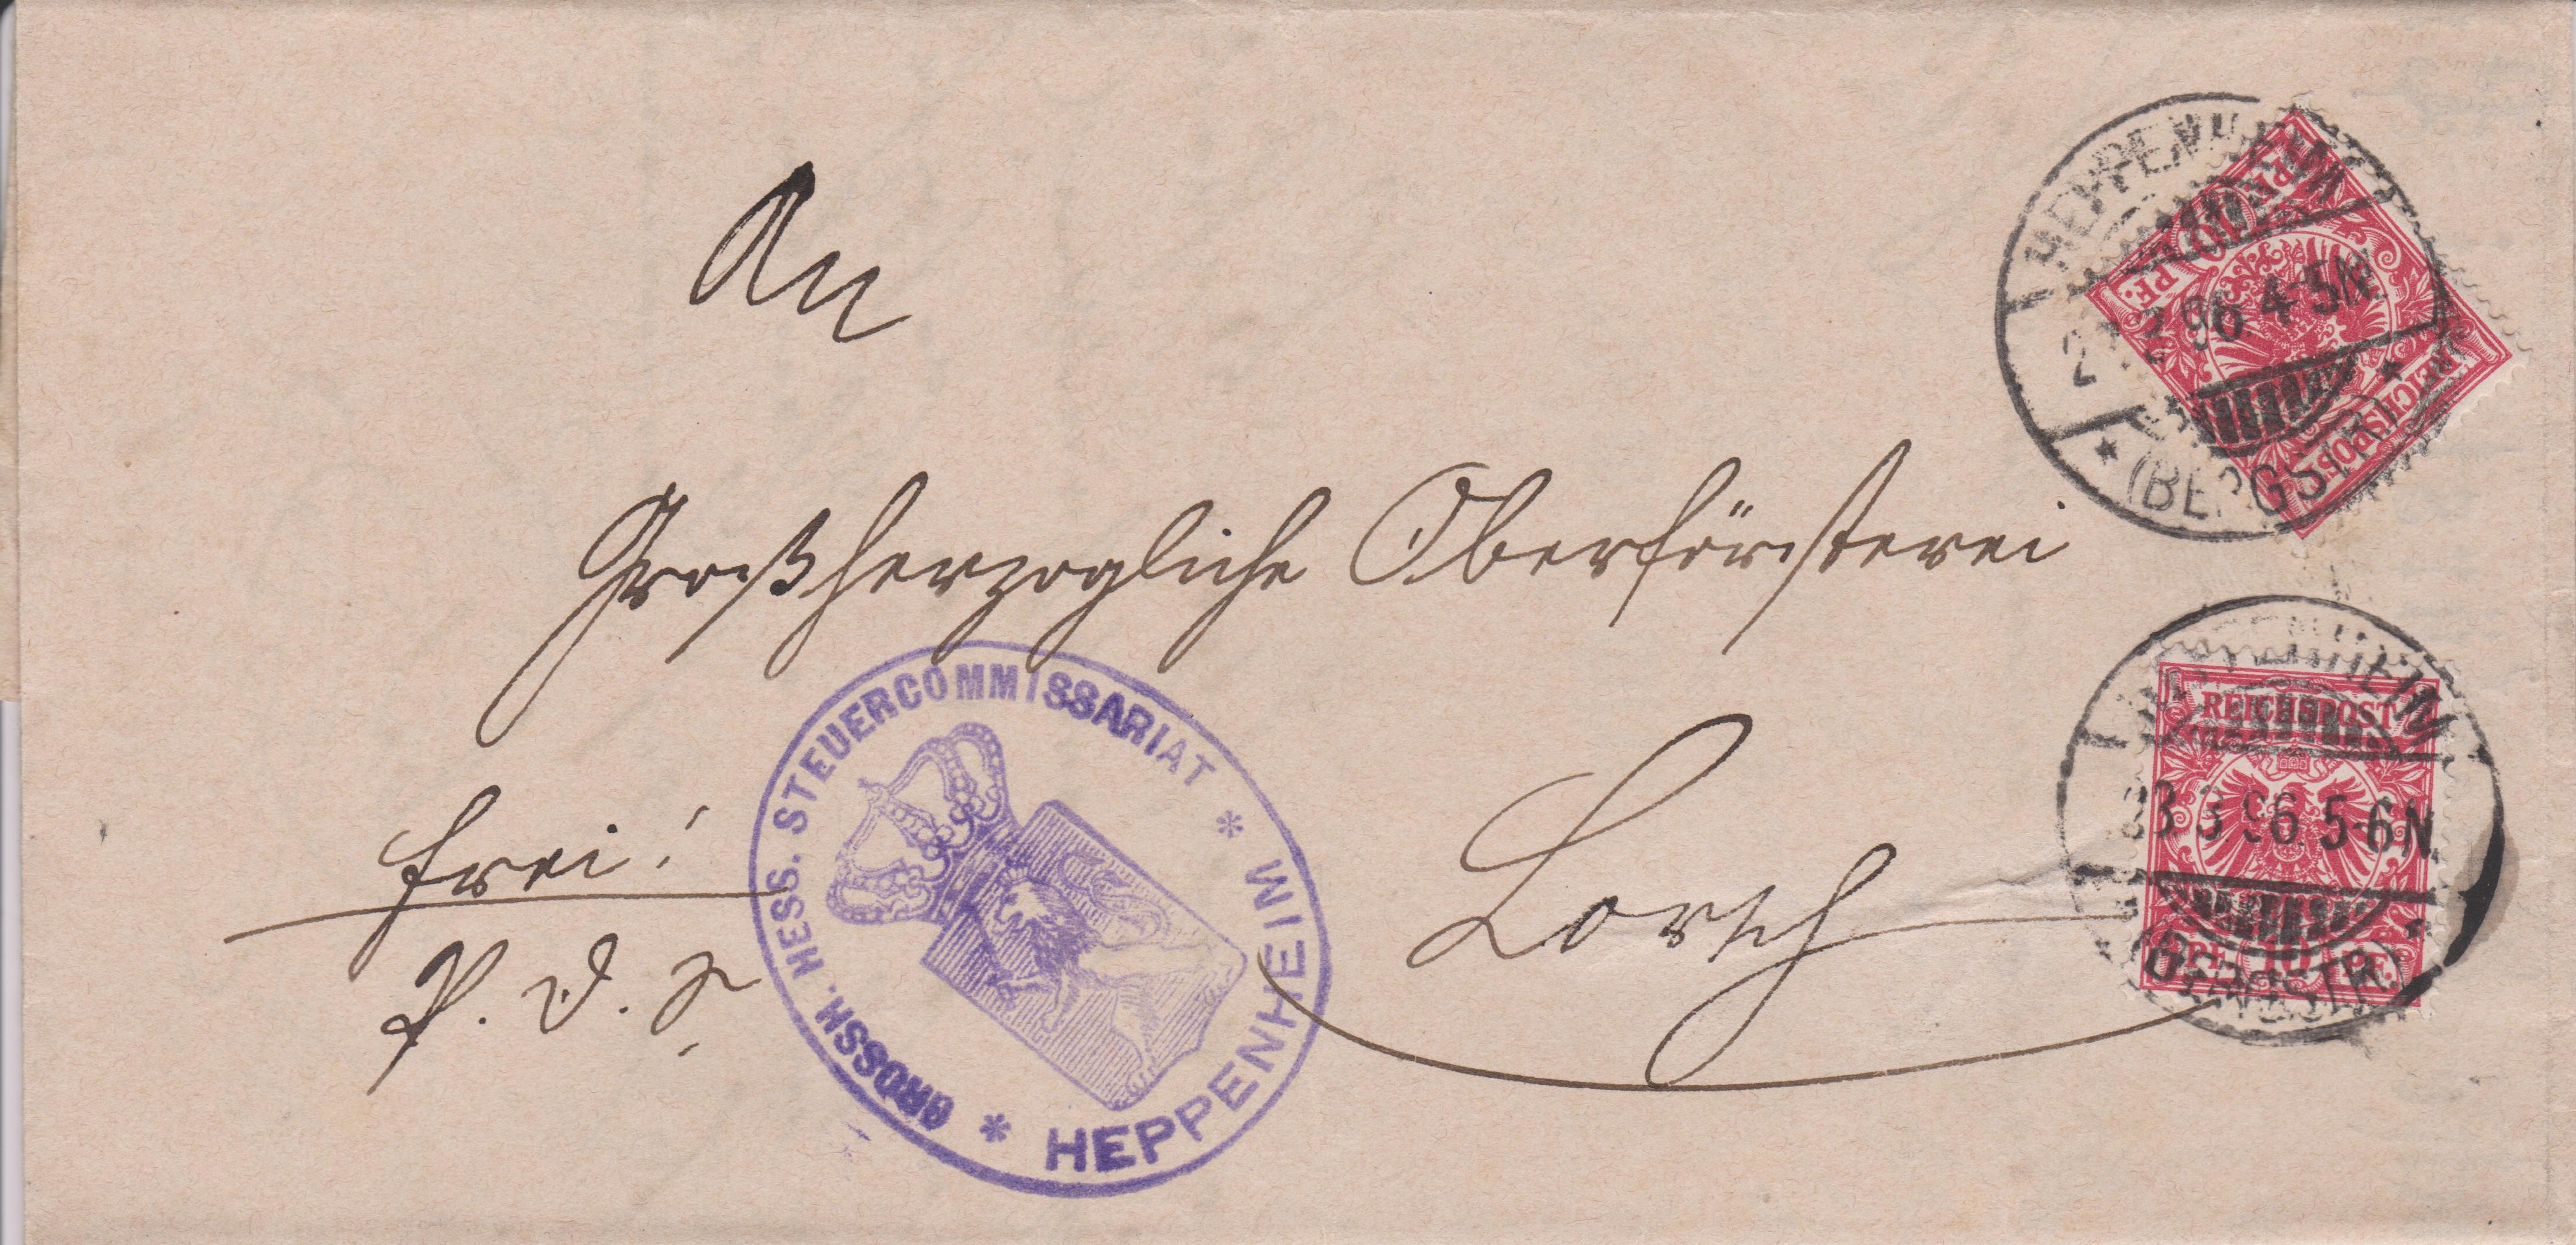 An
Großherzogliche Oberförsterei
Lorsch
frei!
P. d. R.
GROSSH. HESS. STEUERCOMMISSARIAT
* HEPPENHEIM *
HEPPENHEIM
96 4-5N
* (BERGSTR) *
PF. 10 PF.
REICHSPOST
HEPPENHEIM
REICHSPOST
3 96 5-6N
(BERGSTR)
PF. 10 PF.